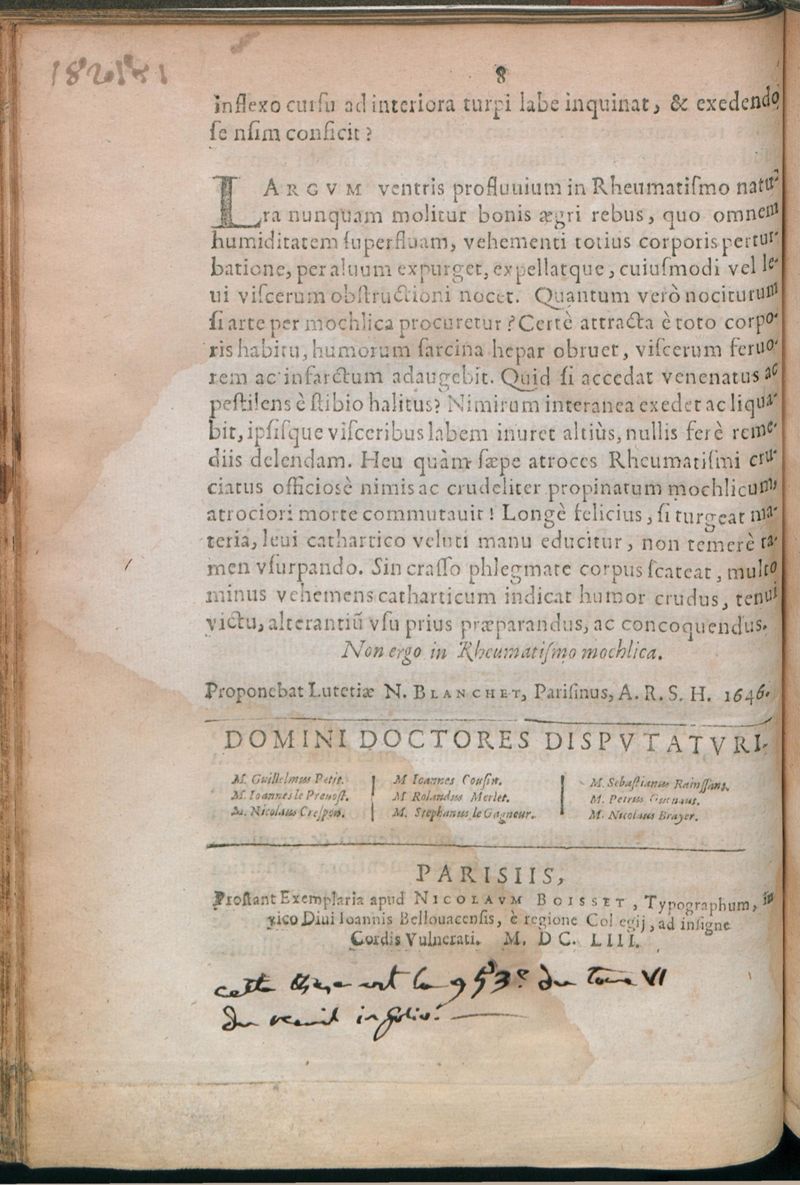 8
inflexo cursu ad interiora turpi labe inquinat, & exedendo
sensim conficit ?
LARGVM ventris profluuium in Rheumatiſmo natu-
ra nunquam molitur bonis ægri rebus, quo omnem
humiditatem ſuperfluam, vehementi totius corporis pertur-
batione, per aluum expurget, expellatque, cuiuſmodi vel le-
ui viſcerum obſtructioni nocet. Quantum verò nociturum
ſi arte per mochlica procuretur ? Certè attracta è toto corpo-
ris habitu, humorum ſarcina hepar obruet, viſcerum feruo-
rem ac infarctum adaugebit. Quid ſi accedat venenatus ac
peſtilens è ſtibio halitus? Nimirum interanea exedet ac liqua-
bit, ipſiſque viſceribus labem inuret altiùs, nullis ferè reme-
diis delendam. Heu quàm ſæpe atroces Rheumatiſmi cru-
ciatus officiosè nimis ac crudeliter propinatum mochlicum,
atrociori morte commutauit ! Longè felicius, ſi turgeat ma-
teria, leui cathartico veluti manu educitur, non temerè ta-
men vſurpando. Sin craſſo phlegmate corpus ſcateat, multo
minus vehemens catharticum indicat humor crudus, tenui
victu, alterantiũ vſu prius præparandus, ac concoquendus.
Non ergo in Rheumatiſmo mochlica.
Proponebat Lutetiæ N. BLANCHET, Pariſinus, A. R. S. H. 1646.
DOMINI DOCTORES DISPVTATVRI.
M. Guillelmus Petit. M Ioannes Couſin. M. Sebaſtianus Rainſſant.
M. Ioannes le Preuoſt. M Rolandus Merlet. M. Petrus Guenaut.
M. Nicolaus Creſpon. M. Stephanus le Gagneur. M. Nicolaus Brayer.
PARISIIS,
Proſtant Exemplaria apud NICOLAVM BOISSET, Typographum, in
vico Diui Ioannis Bellouacenſis, è regione Collegij, ad inſigne
Cordis Vulnerati. M. DC. LIII.
cette theſe est la 953e du tome VI
du recueil in folio.